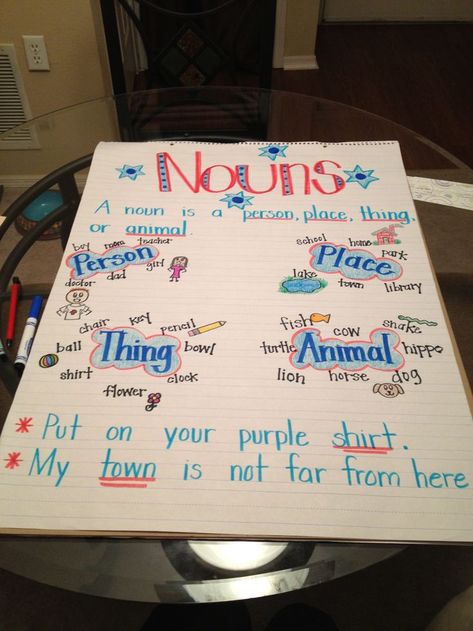 Nouns
A noun is a person, place, thing,
or animal.
boy mom teacher
Person
girl
doctor dad
school home
Place
park
lake town library
chair key pencil
ball Thing bowl
shirt clock
flower
fish cow snake
turtle Animal hippo
lion horse dog
* Put on your purple shirt.
* My town is not far from here